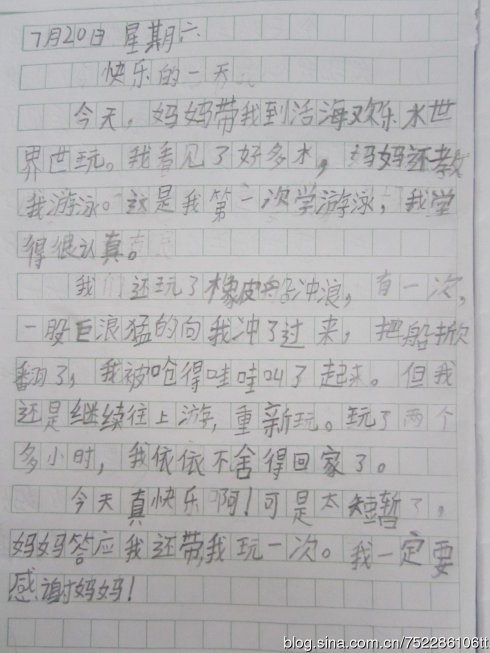 7月20日 星期六
快乐的一天
今天，妈妈带我到活海欢乐水世
界世玩。我看见了好多水，妈妈还教
我游泳。这是我第一次学游泳，我学
得很认真。
我们还玩了橡皮船冲浪，有一次，
一股巨浪猛的向我冲了过来，把船掀
翻了，我被呛得哇哇叫了起来。但我
还是继续往上游，重新玩。玩了两个
多小时，我依依不舍得回家了。
今天真快乐啊！可是太短暂了，
妈妈答应我还带我玩一次。我一定要
感谢妈妈！
blog.sina.com.cn/752286106tt